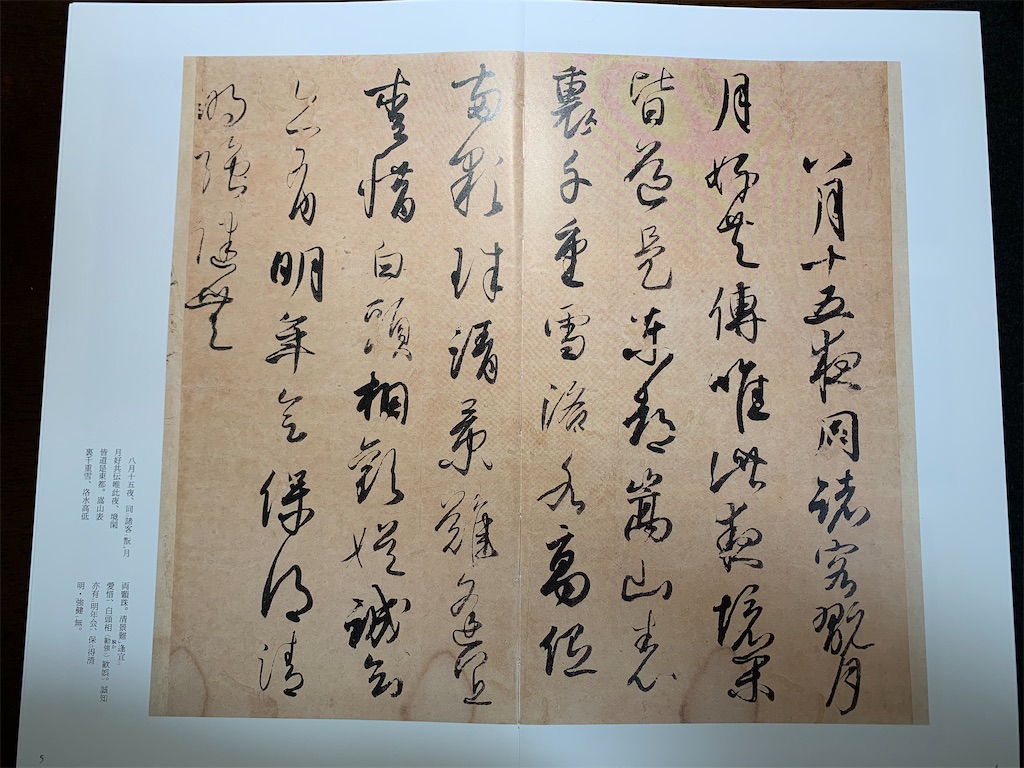 八月十五夜同諸客翫月
月好共傳唯此夜境閑
皆道是東都嵩山表
裏千重雪洛水高低
両顆珠清景難逢宜
愛惜白頭相歡娯誠知
亦有明年会保得清
明強健無
八月十五夜、同諸客翫月
月好共伝唯此夜、境閑
皆道是東都。嵩山表
裏千重雪、洛水高低
両顆珠。清景難逢宜
愛惜、白頭相(勧強)歓娯。誠知
亦有明年会、保得清
明・強健無。
5